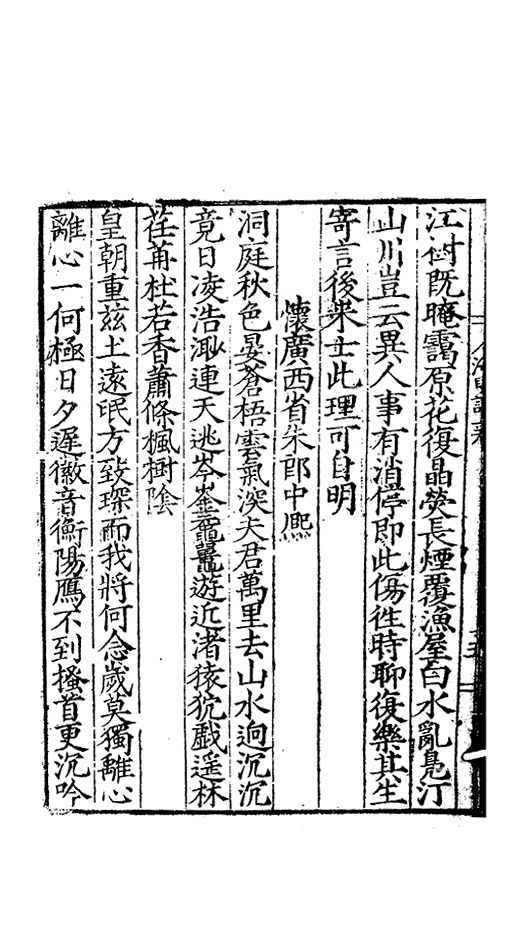 江樹既晻靄原花復晶熒長煙覆漁屋白水亂鳧汀
山川豈云異人事有消停即此傷徃時聊復樂其生
寄言後來士此理可自明
懷廣西省朱郎中熈
洞庭秋色晏蒼梧雲氣深夫君萬里去山水迥沉沉
竟日凌浩渺連天逃岑崟黿鼉遊近渚猿狖戲遥林
荏苒杜若香蕭條楓樹陰
皇朝重兹土遠氓方致琛而我將何念歲莫獨離心
離心一何極日夕遲徽音衡陽鴈不到搔首更沉吟